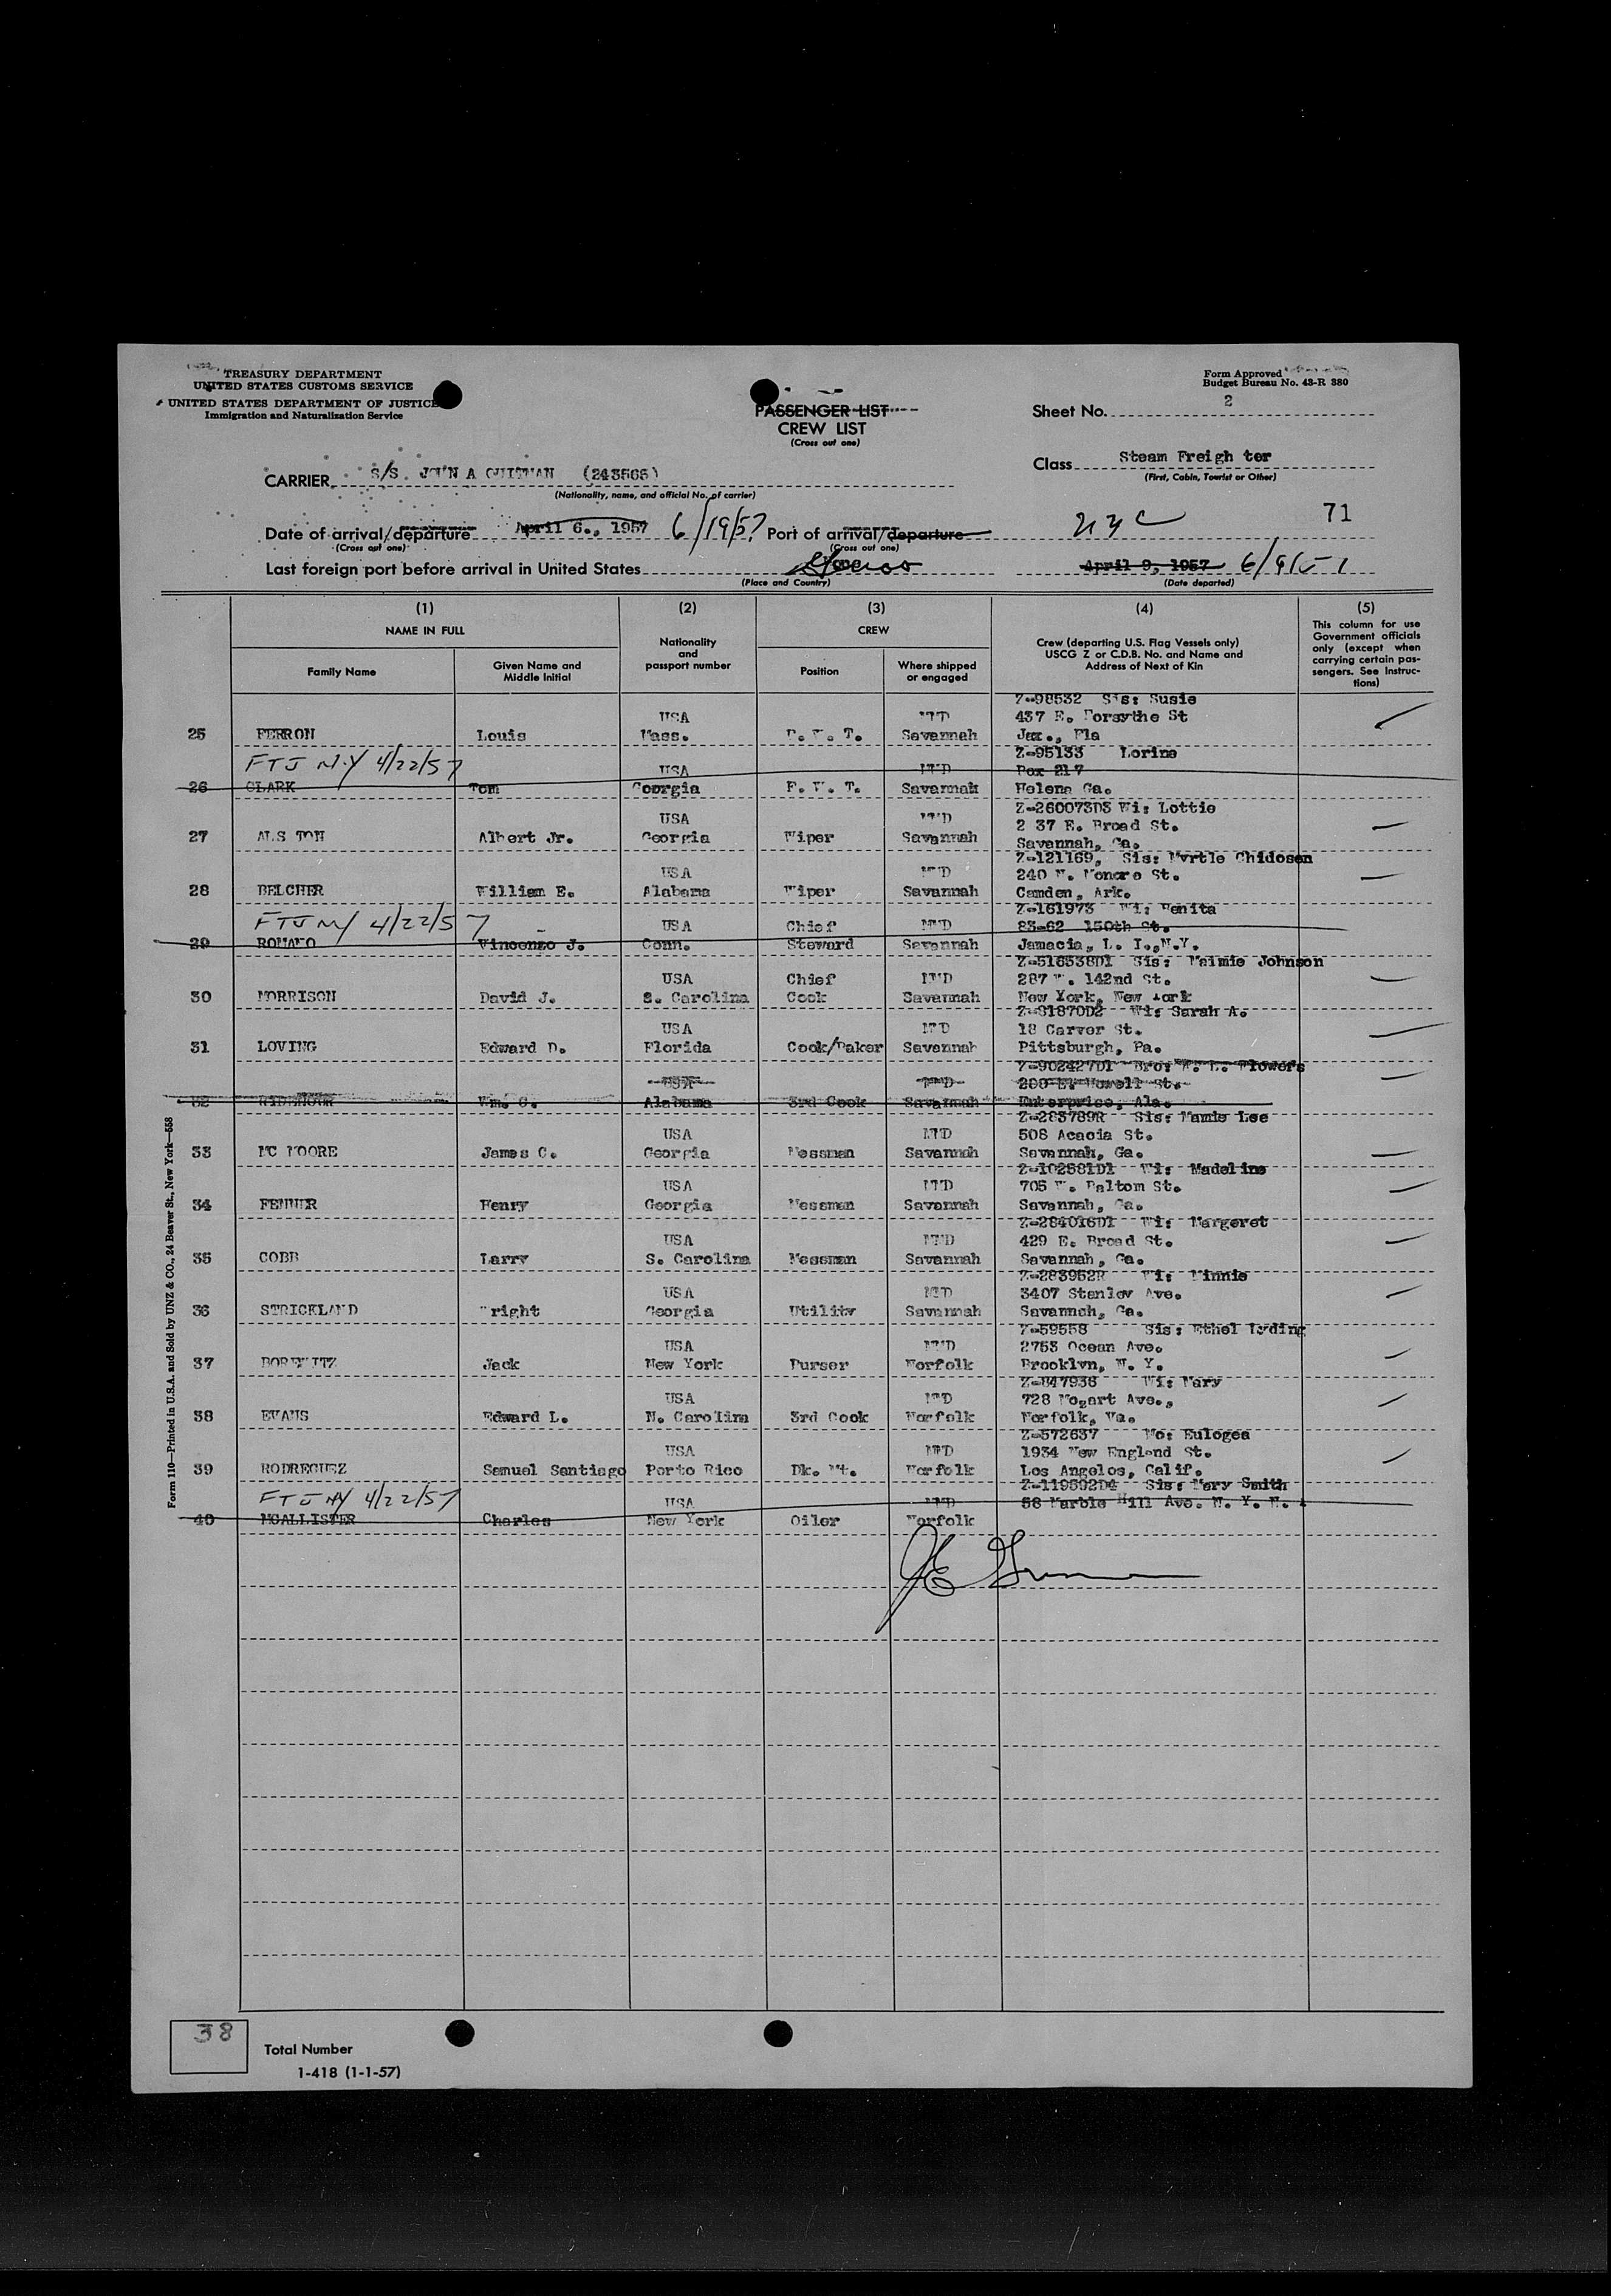 TREASURY DEPARTMENT
UNITED STATES CUSTOMS SERVICE
UNITED STATES DEPARTMENT OF JUSTICE
Immigration and Naturalization Service
PASSENGER LIST
CREW LIST
(Cross out one)
Form Approved
Budget Bureau No. 43-R 380
Sheet No. 2
Class Steam Freigh ter
(First, Cabin, Tourist or Other)
CARRIER S/S. JOHN A QUITMAN (243565)
(Nationality, name, and official No. of carrier)
71
Date of arrival/departure April 6., 1957 6/19/57 Port of arrival/departure
(Cross out one) (Cross out one)
Last foreign port before arrival in United States April 9, 1957
(Place and Country) (Date departed)
(1) (2) (3) (4) (5)
NAME IN FULL
Family Name
Given Name and Middle Initial
Nationality and passport number
CREW
Position
Where shipped or engaged
Crew (departing U.S. Flag Vessels only)
USCG Z or C.D.B. No. and Name and
Address of Next of Kin
This column for use
Government officials
only (except when
carrying certain pas-
sengers. See Instruc-
tions)
Z-98532 Sis: Susie
USA 437 E. Forsythe St
25 FERRON Louis Mass. F. W. T. Savannah Jax., Fla
Z-95133 Lorine
FTJ N.Y 4/22/57 USA Box 217
26 CLARK Tom Georgia F. W. T. Savannah Helena Ga.
Z-260073D3 Wi: Lottie
USA 2 37 E. Broad St.
27 ALS TON Albert Jr. Georgia Wiper Savannah Savannah, Ga.
Z-121169, Sis: Myrtle Chidosen
USA 240 W. Monore St.
28 BELCHER William E. Alabama Wiper Savannah Camden, Ark.
Z-161973 Wi:
FTJ NY 4/22/57 USA Chief 83-62 150th St.
29 ROMANO Vincenzo J. Conn. Steward Savannah Jamacia, L. I., N.Y.
Z-516538D1 Sis: Maimie Johnson
USA Chief 287 W. 142nd St.
30 MORRISON David J. S. Carolina Cook Savannah New York, New York
Z-81870D2 Wi: Sarah A.
USA 18 Carver St.
31 LOVING Edward D. Florida Cook/Baker Savannah Pittsburgh, Pa.
Z-902427D1 Bro: W. L. Flowers
USA 200 E. Howell St.
32 RIDENOUR Wm. C. Alabama 3rd Cook Savannah Enterprise, Ala.
Z-283789R Sis: Mamie Lee
USA 508 Acacia St.
33 MC MOORE James C. Georgia Messman Savannah Savannah, Ga.
Z-102581D1 Wi: Madeline
USA 705 W. St.
34 Henry Georgia Messman Savannah Savannah, Ga.
Z-284016D1 Wi: Margeret
USA 429 E. Broad St.
35 COBB Larry S. Carolina Messman Savannah Savannah, Ga.
Z-283952R Wi: Minnie
USA 3407 Stanley Ave.
36 STRICKLAND Wright Georgia Utility Savannah Savannah, Ga.
Z-59558 Sis: Ethel Lyding
USA 2753 Ocean Ave.
37 Jack New York Purser Norfolk Brooklyn, N. Y.
Z-847936 Wi: Mary
USA 728 Mozart Ave.,
38 EVANS Edward L. N. Carolina 3rd Cook Norfolk Norfolk, Va.
Z-572637 Mo: Eulogea
USA 1934 New England St.
39 RODREGUEZ Samuel Santiago Porto Rico Dk. Mt. Norfolk Los Angelos, Calif.
Z-119592D4 Sis: Mary Smith
FTJ NY 4/22/57 USA 58 Marble Hill Ave. N. Y. N.
40 MCALLISTER Charles New York Oiler Norfolk
38
Total Number
1-418 (1-1-57)
Form 110—Printed in U.S.A. and Sold by UNZ & CO., 24 Beaver St., New York—558